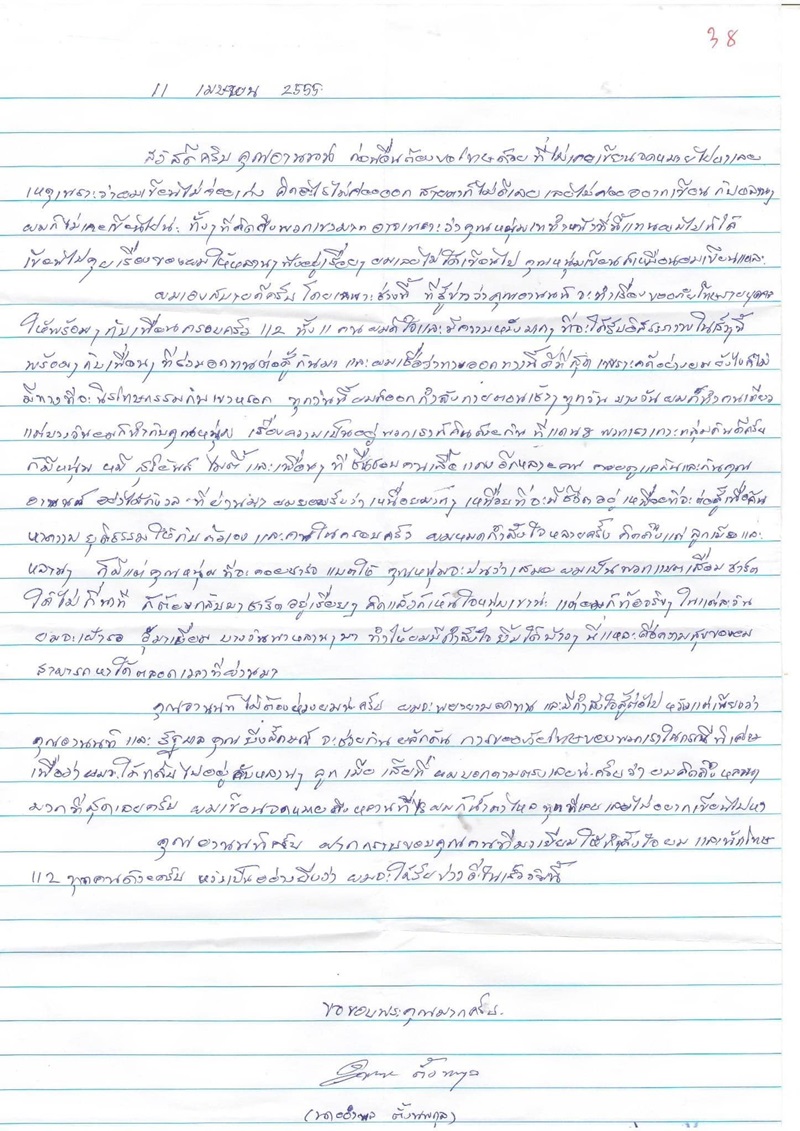 38
11 เมษายน 2555
สวัสดีครับ คุณอานนท์ ก่อนอื่นต้องขอโทษด้วย ที่ไม่เคยเขียนจดหมายไปหาเลย
เหตุเพราะว่าผมเขียนไม่ค่อยเก่ง คิดอะไรไม่ค่อยออก สายตาก็ไม่ดีเลย เลยไม่ค่อยอยากเขียน กับหลานๆ
ผมก็ไม่เคยเขียนไปนะ ทั้งๆ ที่คิดถึงพวกเขามาก อาจเพราะว่าคุณหนุ่มเขาทำหน้าที่นี้แทนผมไปก็ได้
เขียนไปคุยเรื่องของผมให้หลานๆ ฟังอยู่เรื่อยๆ ผมเลยไม่ได้เขียนไป คุณหนุ่มเขียนก็เหมือนผมเขียนแหละ
ผมเองสบายดีครับ โดยเฉพาะช่วงนี้ ที่รู้ข่าวว่าคุณอานนท์ จะทำเรื่องขออภัยโทษ
ให้พร้อมๆ กับเพื่อนครอบครัว 112 ทั้ง 11 คน ผมดีใจและมีความหวังมากๆ ที่จะได้รับอิสรภาพในเร็วๆนี้
พร้อมๆ กับเพื่อนๆ ที่ร่วมอดทนต่อสู้กันมา และผมเชื่อว่าทางออกทางนี้ดีที่สุด เพราะคดีอย่างผม ยังไงก็ไม่
มีทางที่จะนิรโทษกรรมกับเขาหรอก ทุกวันนี้ผมก็ออกกำลังกายตอนเช้าๆ ทุกวัน บางวันผมก็ทำคนเดียว
แต่บางวันผมก็ทำกับคุณหนุ่ม เรื่องความเป็นอยู่ พวกเราก็กินด้วยกัน ที่แดน 8 พวกเราเกาะกลุ่มกันดีครับ
ก็มีหนุ่ม หมี สุริยันต์ และเพื่อนๆ ที่ชื่นชอบคนเสื้อแดงอีกหลายคน คอยดูแลกันและกันคุณ
อานนท์ อย่าได้กังวล ที่ผ่านมา ผมยอมรับว่า เหนื่อยมากๆ เหนื่อยที่จะมีชีวิตอยู่ เหนื่อยที่จะต่อสู้เพื่อค้น
หาความยุติธรรมให้กับตัวเอง และคนในครอบครัว ผมหมดกำลังใจหลายครั้ง คิดถึงแต่ ลูกเมียและ
หลานๆ ก็มีแต่คุณหนุ่ม ที่จะคอยชาร์จ แบตให้ คุณหนุ่มจะบ่นว่าเสมอ ผมเป็นพวกแบตเสื่อม ชาร์ต
ได้ไม่กี่นาที ก็ต้องกลับมาชาร์ตอยู่เรื่อยๆ คิดแล้วก็เห็นใจหนุ่มเขานะ แต่ผมก็ท้อจริงๆ ในแต่ละวัน
ผมจะเฝ้ารอ อุ๊มาเยี่ยม บางวันพาหลานๆ มา ทำให้ผมมีกำลังใจ ยิ้มได้บ้างๆ นี่แหละคือความสุขของผม
สามารถหาได้ตลอดเวลาที่ผ่านมา
คุณอานนท์ ไม่ต้องห่วงผมนะครับ ผมจะพยายามอดทน และมีกำลังใจสู้ต่อไป หวังแต่เพียงว่า
คุณอานนท์ และ รัฐบาล คุณ ยิ่งลักษณ์ จะช่วยกัน ผลักดัน การขออภัยโทษของพวกเราในกรณีพิเศษ
เพื่อว่าผมจะได้กลับไปอยู่กับหลานๆ ลูก เมีย เสียที ผมบอกตามตรงเลยนะครับว่า ผมคิดถึงหลานๆ
มากที่สุดเลยครับ ผมเขียนจดหมายถึงหลานทีไร ผมก็น้ำตาไหล ทุกทีเลย เลยไม่อยากเขียนไปหา
คุณอานนท์ครับ ฝากกราบขอบคุณคนที่มาเยี่ยม ให้กำลังใจผม และนักโทษ
112 ทุกคนด้วยครับ หวังเป็นอย่างยิ่งว่า ผมจะได้รับข่าวดีในเร็ววันนี้
ขอขอบพระคุณมากครับ
(นายอำพล ตั้งนพกุล)